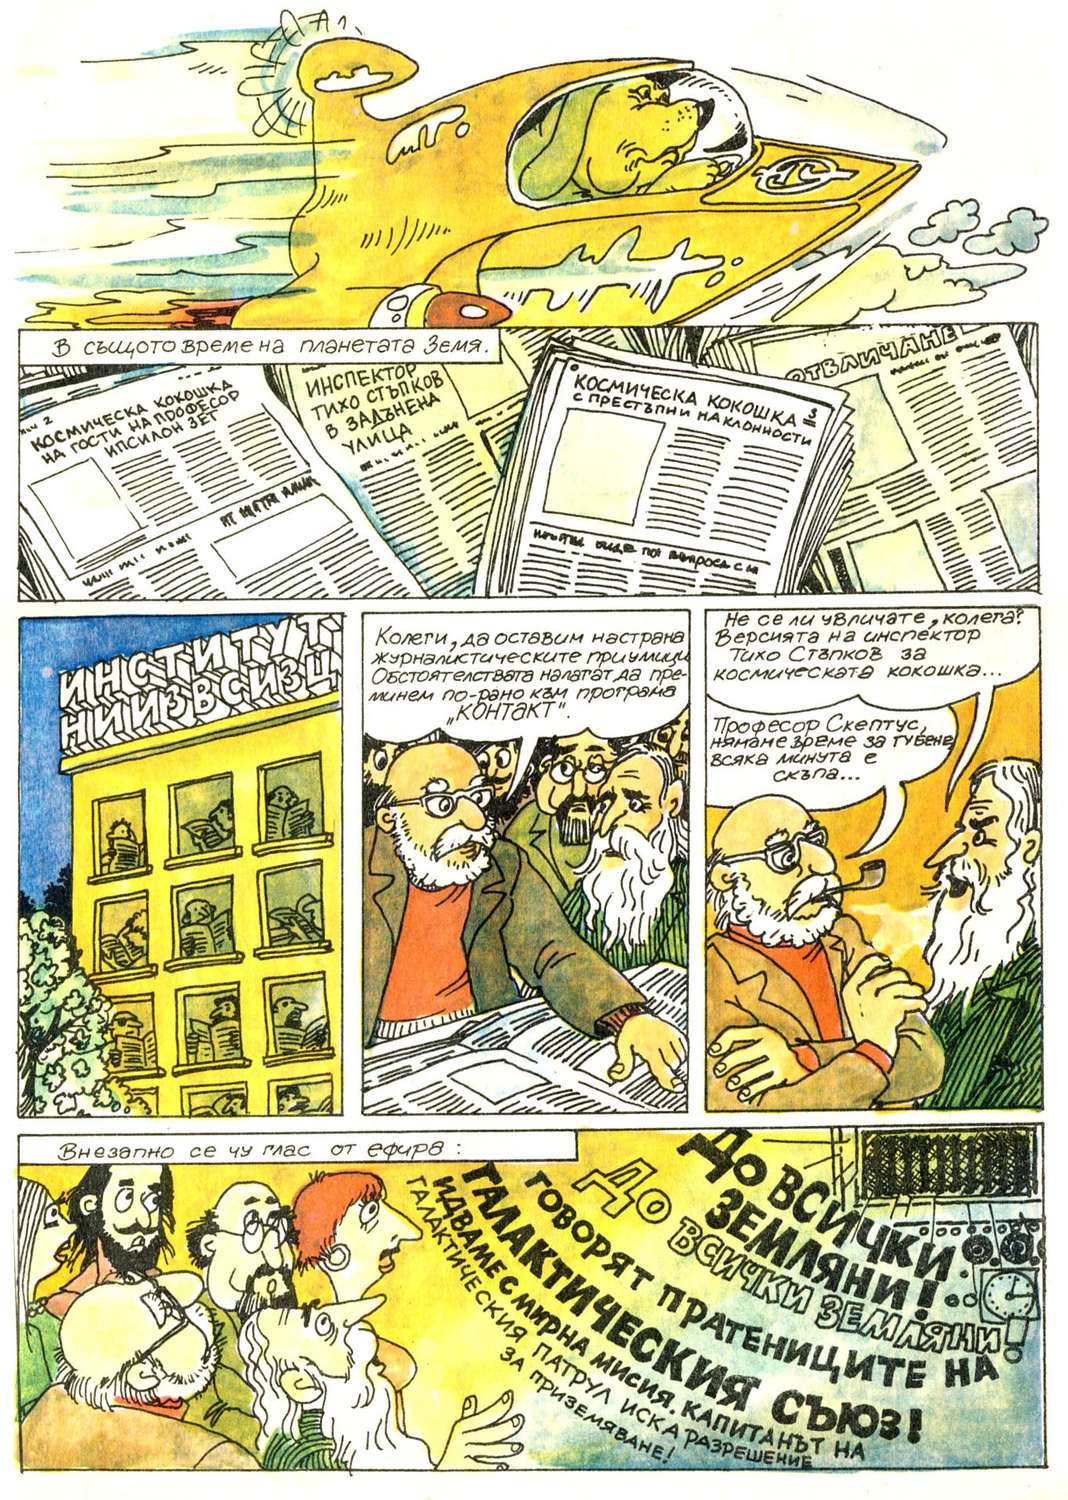 В същото време на планетата Земя.
2
КОСМИЧЕСКА КОКОШКА
НА ГОСТИ НА ПРОФЕСОР
ИПСИЛОН ЗЕТ
ИНСПЕКТОР
ТИХО СТЪПКОВ
В ЗАДЪНЕНА
УЛИЦА
КОСМИЧЕСКА КОКОШКА
С ПРЕСТЪПНИ НАКЛОННОСТИ
3
ОТВЛИЧАНЕ
ИНСТИТУТ
НИИИЗВСИЗЦ
Колеги, да оставим настрана
журналистическите приумици
Обстоятелствата налагат да пре-
минем по-рано към програма
„КОНТАКТ".
Не се ли увличате, колега?
Версията на инспектор
Тихо Стъпков за
космическата кокошка...
Професор Скептус,
нямаме време за губене,
всяка минута е
скъпа...
Внезапно се чу глас от ефира:
ДО ВСИЧКИ
ЗЕМЛЯНИ!
ДО ВСИЧКИ ЗЕМЛЯНИ!
ГОВОРЯТ ПРАТЕНИЦИТЕ НА
ГАЛАКТИЧЕСКИЯ СЪЮЗ!
ИДВАМЕ С МИРНА МИСИЯ. КАПИТАНЪТ НА
ГАЛАКТИЧЕСКИЯ ПАТРУЛ ИСКА РАЗРЕШЕНИЕ
ЗА ПРИЗЕМЯВАНЕ!